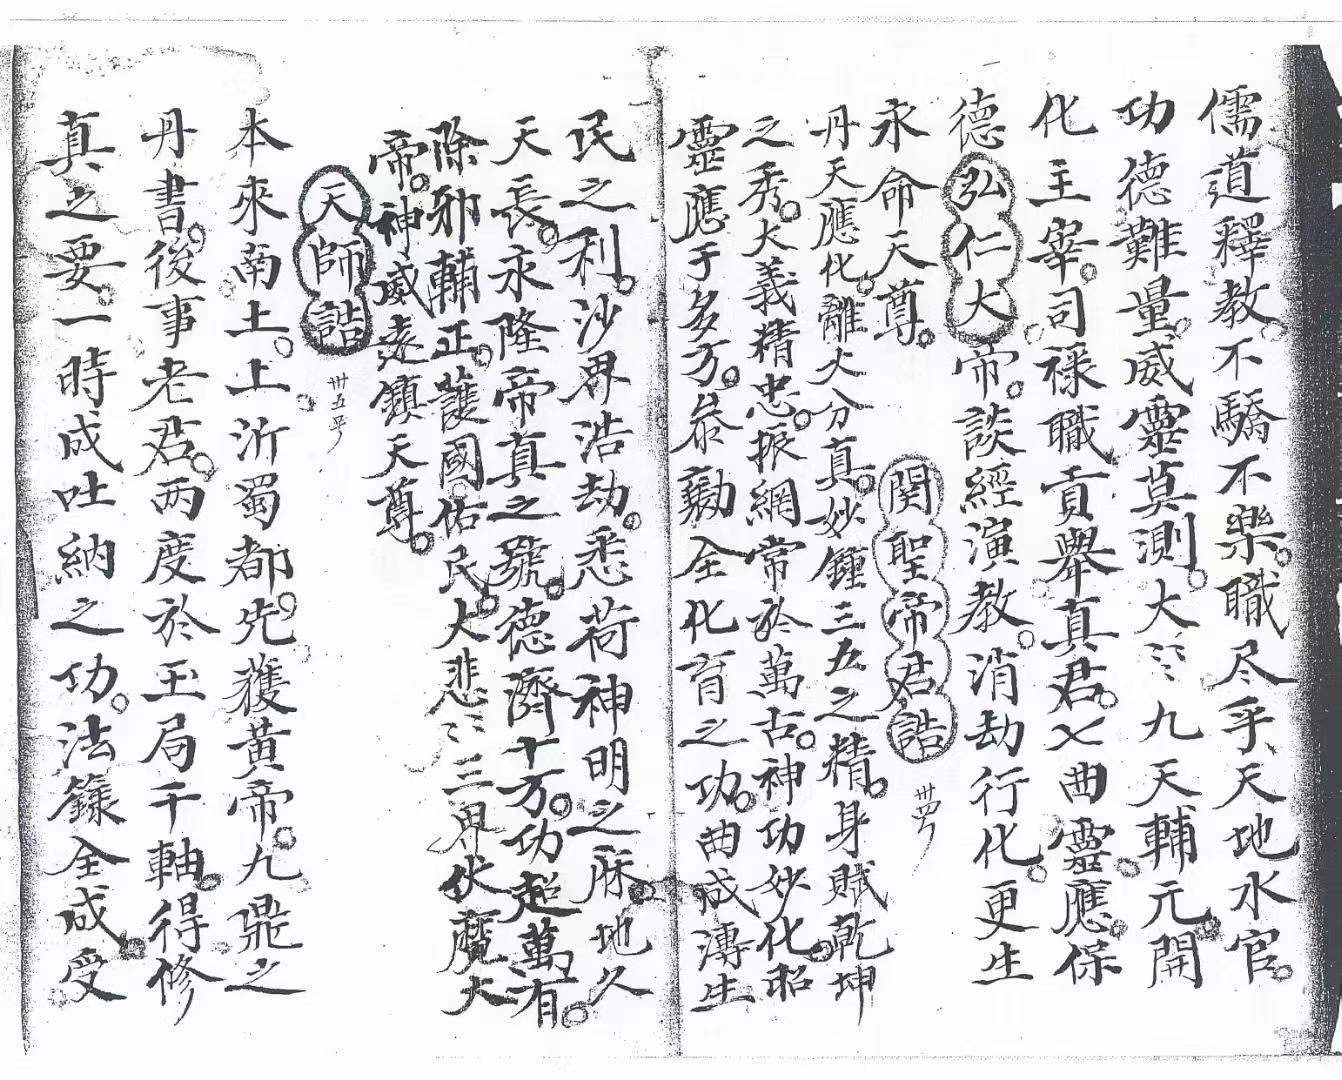 儒道釋教。不驕不樂。職尽乎天地水官。
功德難量。威靈莫測。大〻九天輔元。開
化主宰。司祿職貢舉真君。七曲靈應。保
德弘仁大帝。談經演教。消劫行化。更生
永命天尊。
関聖帝君誥
卅四
丹天應化。離火分真。妙鍾三五之精。身賦乾坤
之秀。大義精忠。振網常於萬古。神功妙化。昭
靈應于多方。恭勷全化育之功。曲成溥生
民之利。沙界浩劫。悉荷神明之庥。地久
天長。永隆帝真之號。德濟十方。功超萬有。
除邪輔正。護國佑民。大悲〻三界伏魔大
帝。神威遠鎮天尊。
天師誥
卅五
本來南土。上沂蜀都。先獲黃帝。九鼎之
丹書。後事老君。两度於玉局千軸。得修
真之要。一時成吐納之功。法籙全成。受